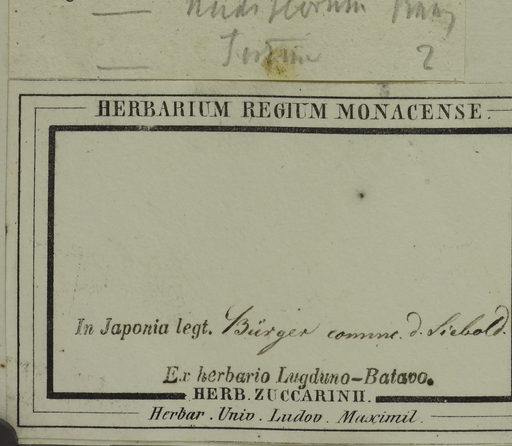 nudiflorum
HERBARIUM REGIUM MONACENSE.
In Japonia legt. Bürger comme. d. Siebold.
Ex herbario Lugduno-Batavo.
HERB. ZUCCARINII.
Herbar. Univ. Ludov. Maximil.